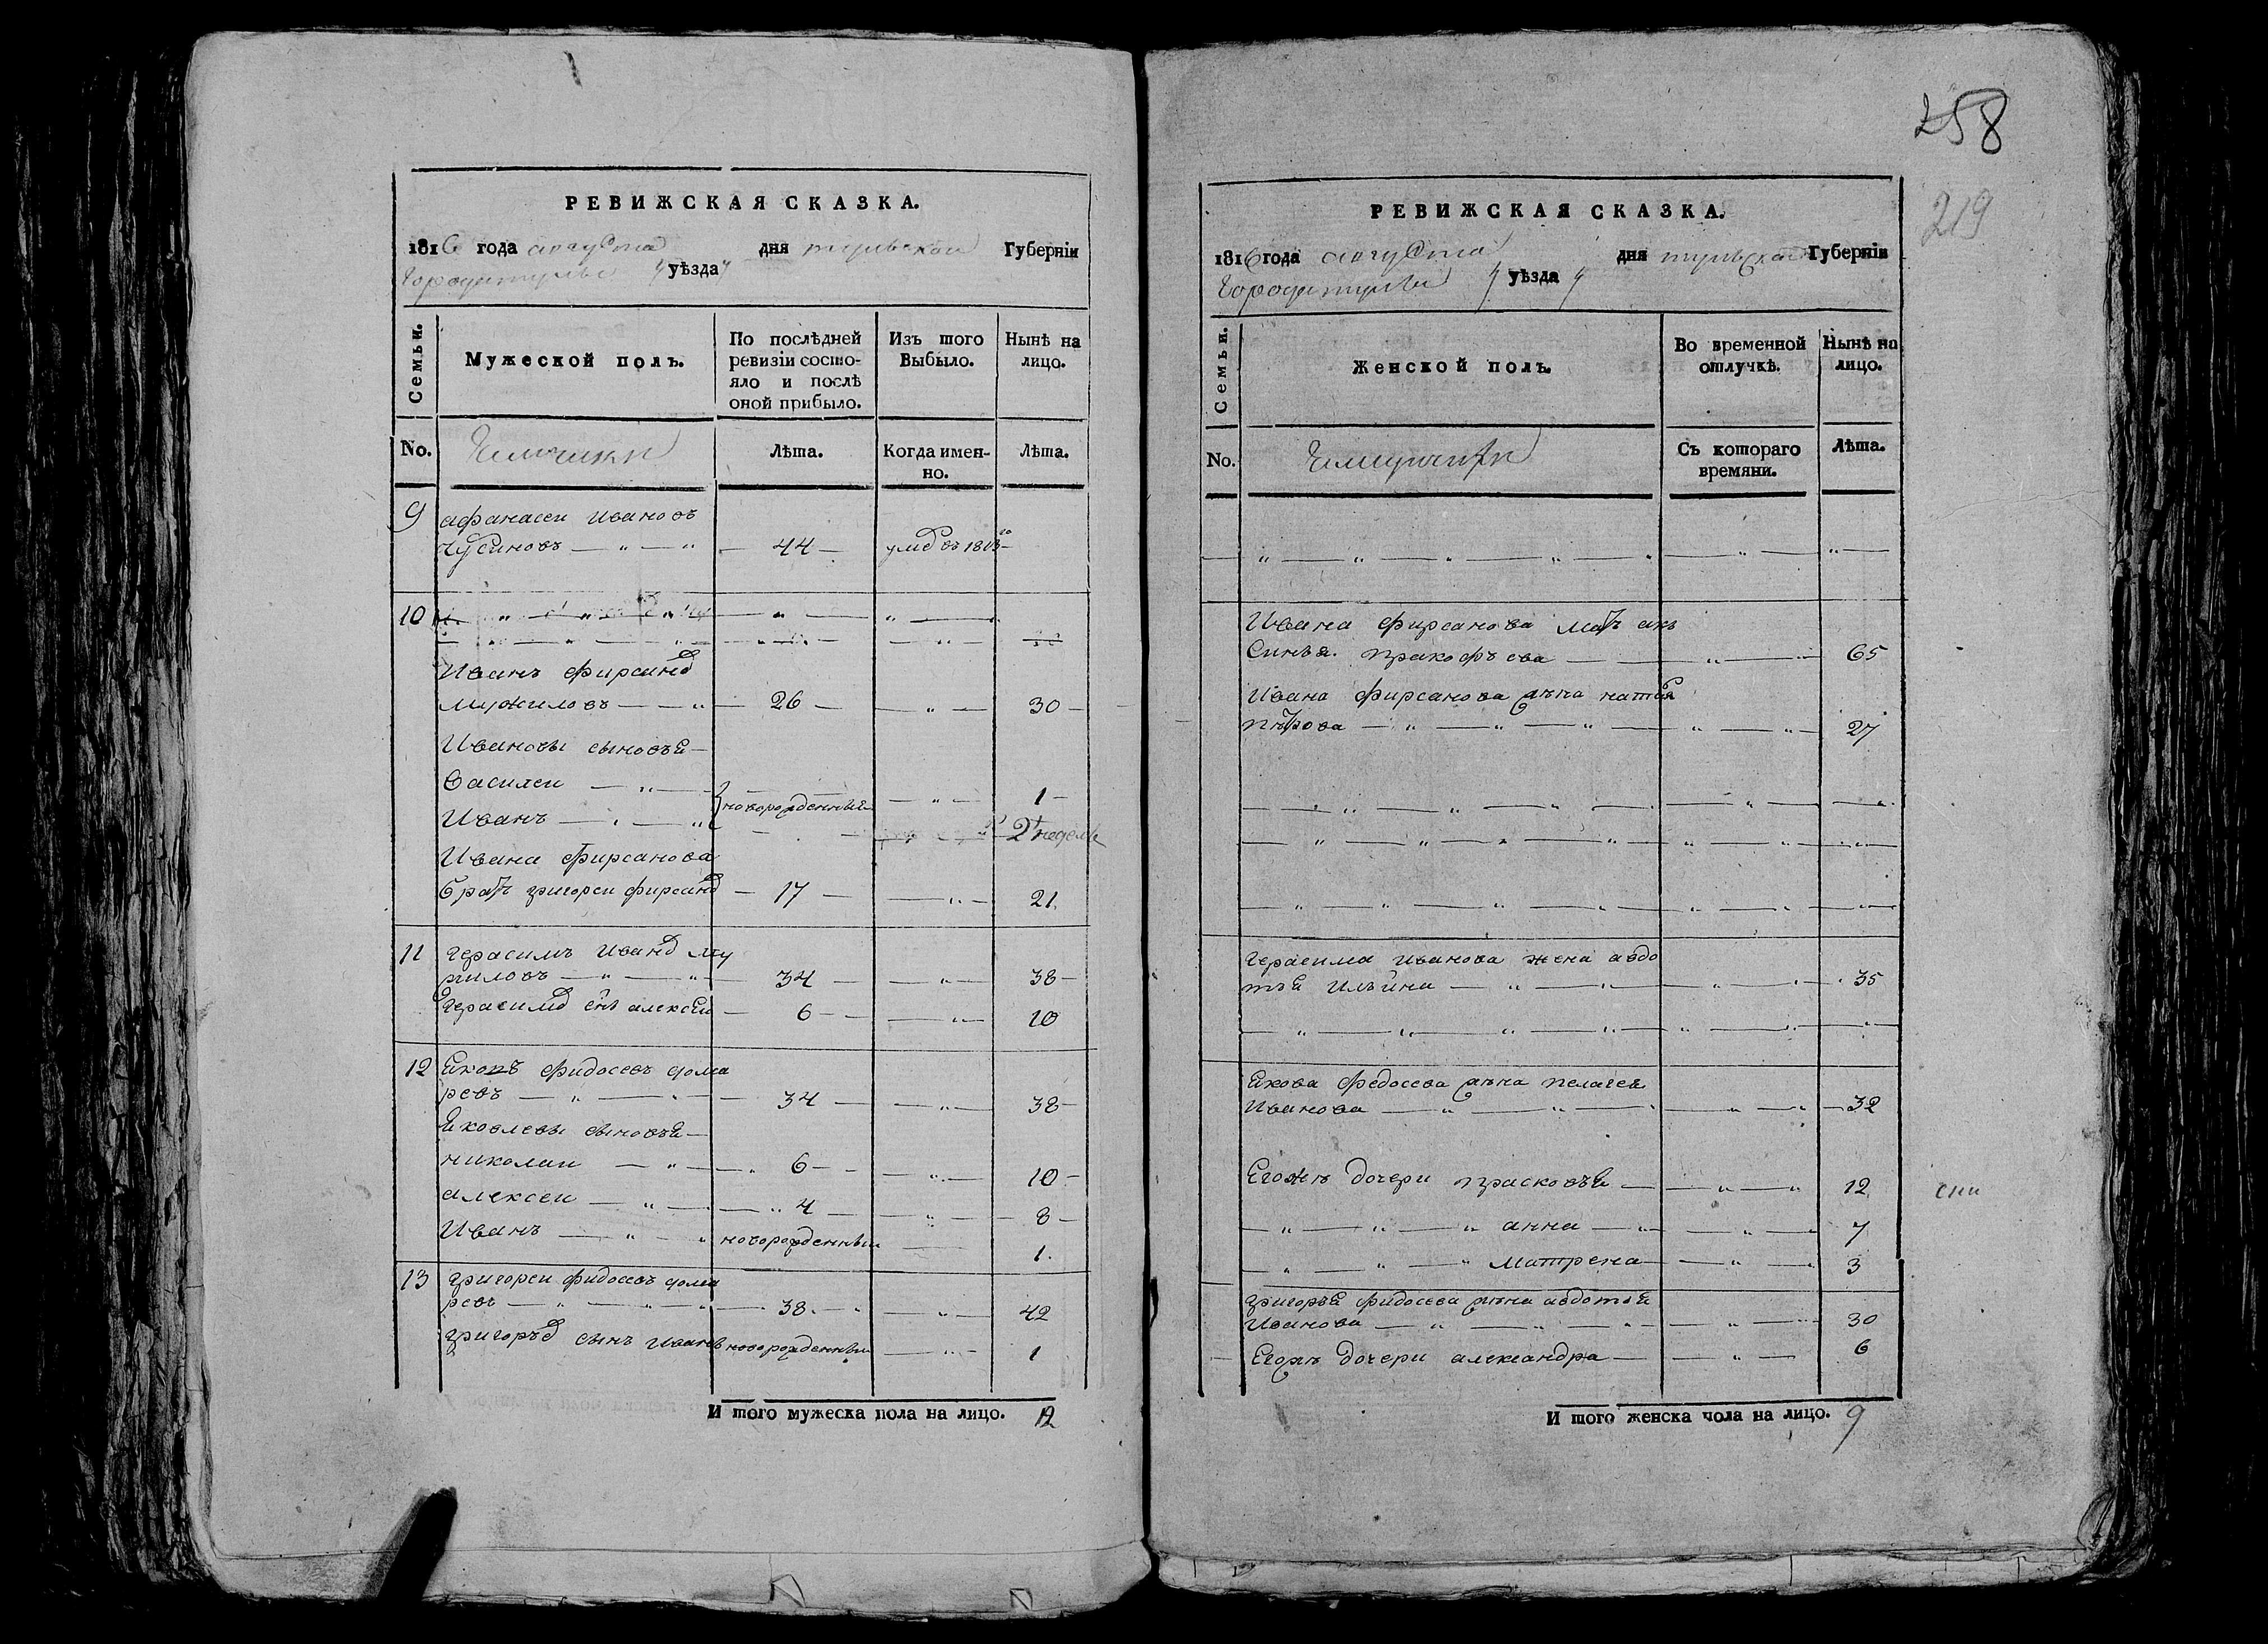 РЕВИЖСКАЯ СКАЗКА.
1816 года августа дня тульской Губерніи
города тулы уѣзда
Семьи. Мужеской полъ. По послѣдней ревизіи состояло и послѣ оной прибыло. Изъ того Выбыло. Нынѣ на лицо.
No. Ямщики Лѣта. Когда именно. Лѣта.
9 афанасеи ивановъ
чусиновъ — " — " — 44 — умре въ 1813го
10
Иванъ фирсано
мужиловъ — — " — 26 — — " — 30 —
Ивановы сыновья —
василеи — " — — " — 1 —
новорожденныя
Иванъ — " — " 2 недели
Ивана фирсанова
братъ григореи фирсано — 17 — — " — 21
11 герасимъ ивано му
жиловъ — " — " — 34 — — " — 38 —
герасимо снъ алексеи — 6 — — — " — 10
12 яковъ фидосевъ дома
ревъ — " — " — 34 — — " — 38 —
яковлевы сыновья —
николаи — " — " 6 — — — " — 10 —
алексеи — " — — " 4 — — " — 8 —
Иванъ — " — " новорожденныи — 1.
13 григореи фидосевъ дома
ревъ — " — " — " — 38. — " — " — 42
григорьево сынъ иванъ новорожденныи — " — 1
И того мужеска пола на лицо. 12
258
219
РЕВИЖСКАЯ СКАЗКА.
1816 года августа дня тульской Губерніи
города тулы уѣзда
Семьи. Женской полъ. Во временной отлучкѣ. Нынѣ на лицо.
No. Съ котораго времяни. Лѣта.
— " — " — " — " — " — " — " —
Ивана фирсанова мать ак
синья. пракофьева — — " — 65
Ивана фирсанова жена наталья
петрова — " — " — " — " — " — 27
— " — " — " — " — " —
— " — " — " — " — " — " —
— " — " — " — " — " — " —
герасима иванова жена авдо
тья ильина — " — " — " — " — 35
— " — " — " — " — " — " —
якова федосева жена пелагея
иванова — " — " — — " — " — 32
Егожъ дочери прасковья — — " — " 12
— " — " — " анна — " — " — " 7
— " — " — " матрена — — " — " 3
григорья фидосева жена авдотья
иванова — " — " — " — " — 30
Егожъ дочери александра — — " — 6
И того женска пола на лицо. 9